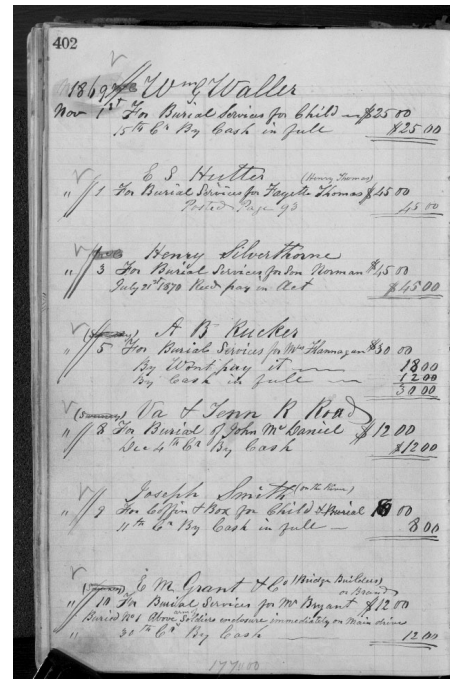 402
1869 Wm G Waller
Nov 1st For Burial Services for Child $25 00
15th Cr By Cash in full $25 00
E S Hutter (Henry Thomas)
" 1 For Burial Services for Fayette Thomas $45 00
Posted Page 93 45 00
Henry Silverthorne
" 3 For Burial Services for Son Norman $45 00
July 21st 1870 Recd pay in Act $45 00
A B Rucker
" 5 For Burial Services for Mrs Flannagan $30 00
By Wont pay it 18 00
By Cash in full 12 00
30 00
Va & Tenn R Road
" 8 For Burial of John Mc Daniel $12 00
Dec 4th Cr By Cash $12 00
Joseph Smith (on the River)
" 9 For Coffin & Box for Child & Burial 00
11th Cr By Cash in full 8 00
E M Grant & Co (Bridge Builders)
" 10 For Burial Services for Mr Bryant $12 00
Buried No 1 Above Soldiers enclosure immediately on Main drive
" 30th Cr By Cash 12 00
177 000